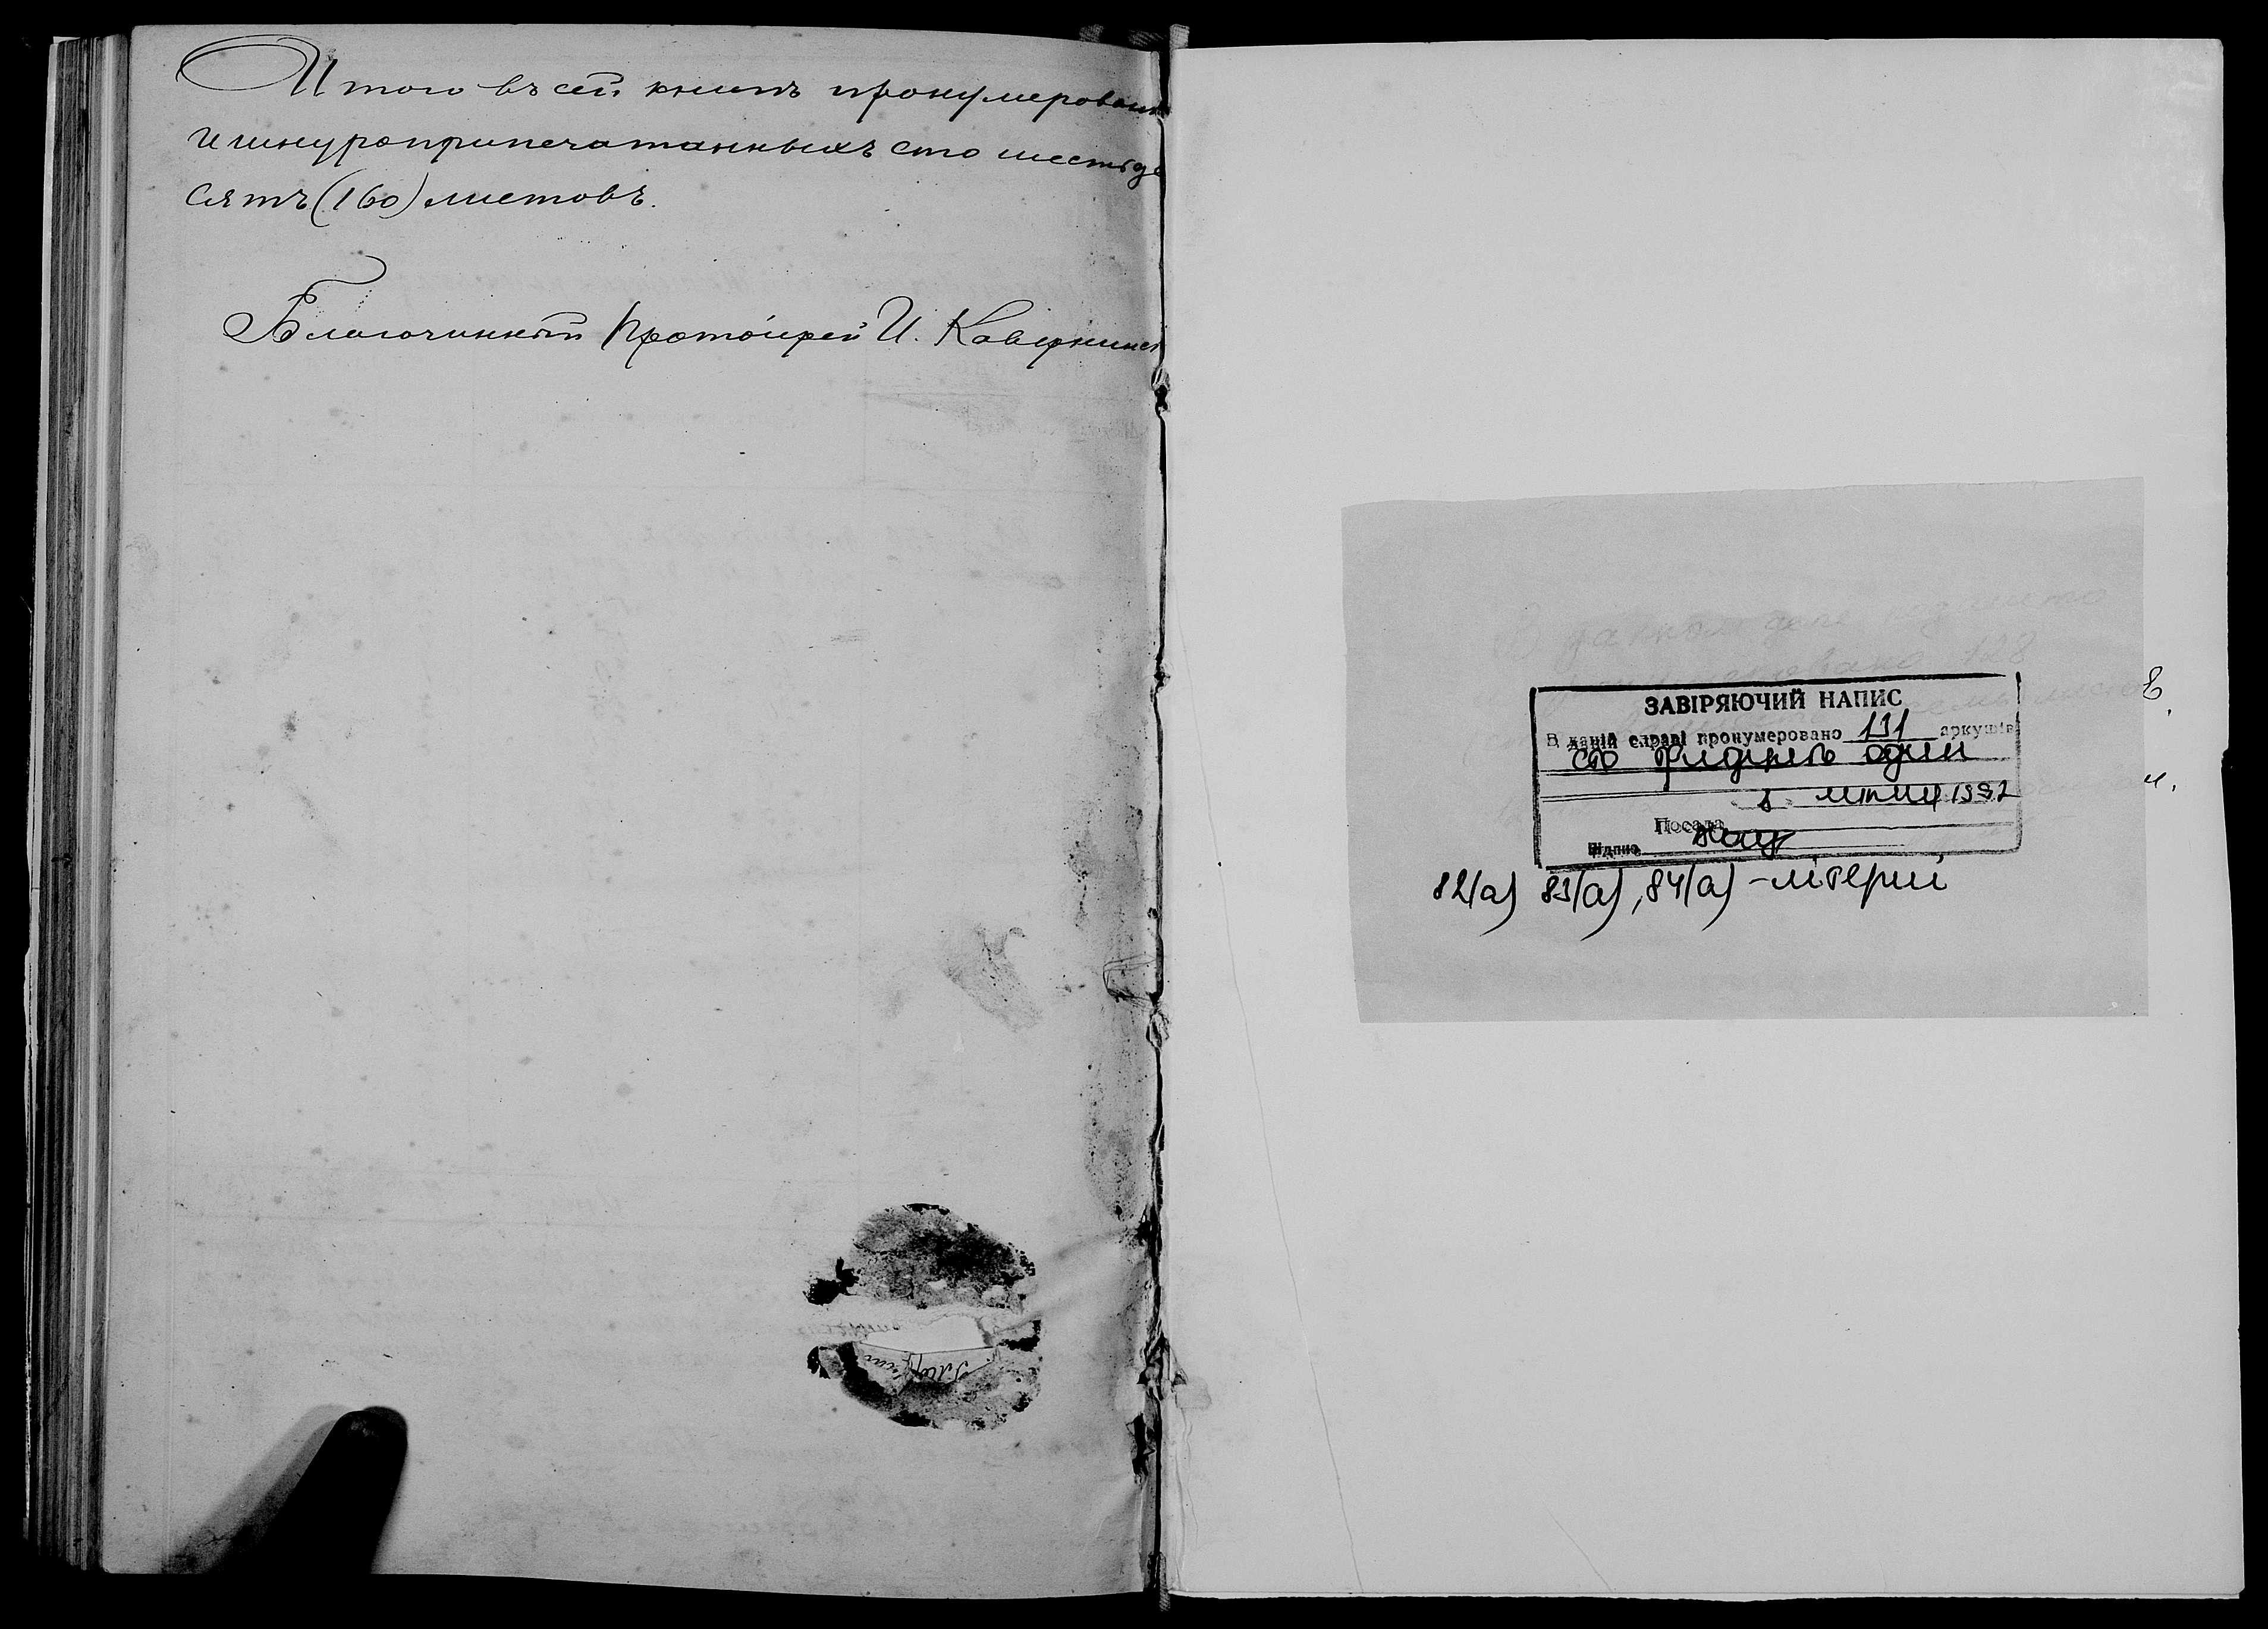 Итого въ сей книгѣ пронумерован
и шнуроприпечатанныхъ сто шестьде
сятъ (160) листовъ.
Благочинный Протоіерей И.
ЗАВІРЯЮЧИЙ НАПИС
В даній справі пронумеровано 131 аркушів
сто тридцять один
8 липня 1992
Посада
Підпис
82(а) 83(а), 84(а) - літерні